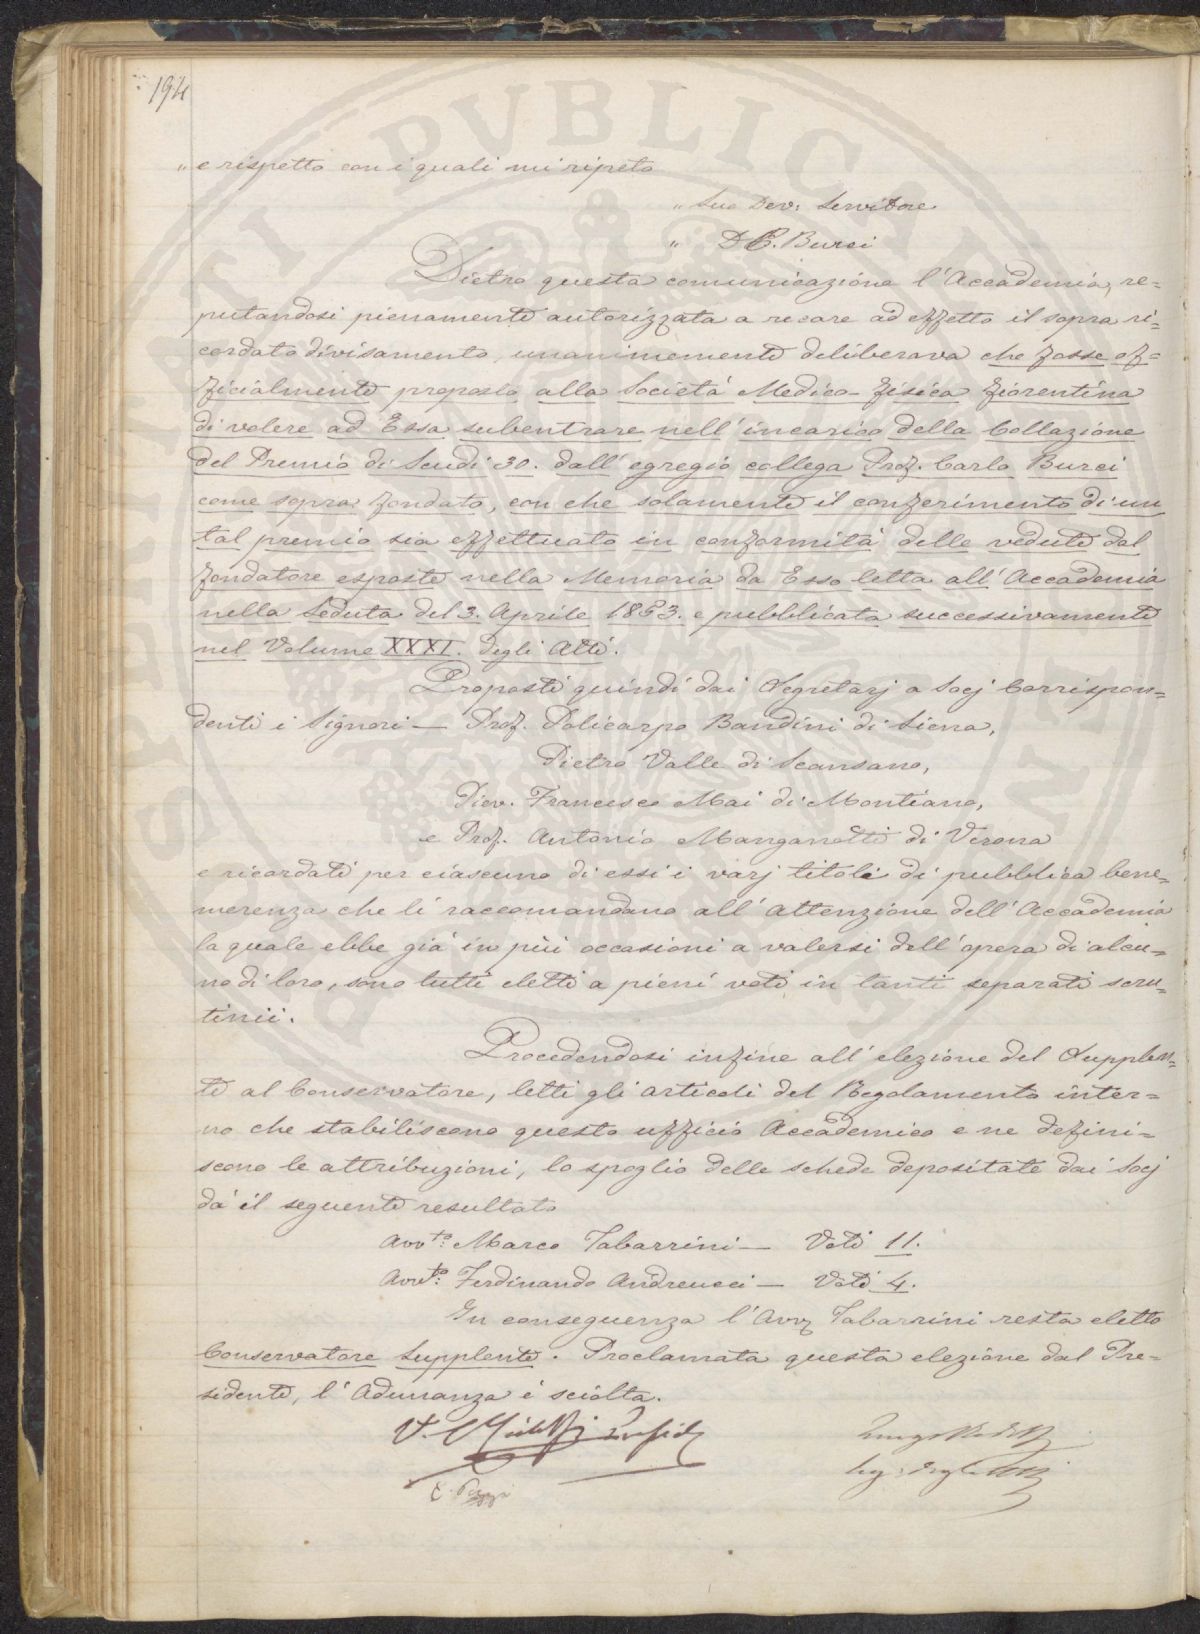 194
„ e rispetto con i quali mi ripeto
„ Suo Dev: Servitore
„ D C. Burci
Dietro questa comunicazione l'Accademia, re=
putandosi pienamente autorizzata a recare ad effetto il sopra ri=
cordato divisamento, unanimemente deliberava che fosse of=
ficialmente proposto alla Società Medico-Fisica Fiorentina
di volere ad Essa subentrare nell'incarico della Collazione
del Premio di Scudi 30. dall'egregio collega Prof. Carlo Burci
come sopra fondato, con che solamente il conferimento di un
tal premio sia effettuato in conformità delle vedute dal
fondatore esposte nella Memoria da Esso letta all'Accademia
nella Seduta del 3. Aprile 1853. e pubblicata successivamente
nel Volume XXXI. degli Atti.
Proposti quindi dai Segretarj a Socj Corrispon=
denti i Signori — Prof. Policarpo Bandini di Siena,
Pietro Valle di Scansano,
Piev. Francesco Mai di Montiano,
e Prof. Antonio Manganotti di Verona
e ricordati per ciascuno di essi i varj titoli di pubblica bene=
merenza che li raccomandano all'attenzione dell'Accademia
la quale ebbe già in più occasioni a valersi dell'opera di alcu=
no di loro, sono tutti eletti a pieni voti in tanti separati scru=
tinii.
Procedendosi infine all'elezione del Supplen=
te al Conservatore, letti gli articoli del Regolamento inter=
no che stabiliscono questo ufficio Accademico e ne defini=
scono le attribuzioni, lo spoglio delle schede depositate dai Socj
dà il seguente resultato
Avv.to: Marco Tabarrini — Voti 11.
Avv.to: Ferdinando Andreucci — Voti 4.
In conseguenza l'Avv Tabarrini resta eletto
Conservatore Supplente. Proclamata questa elezione dal Pre=
sidente, l'Adunanza è sciolta.